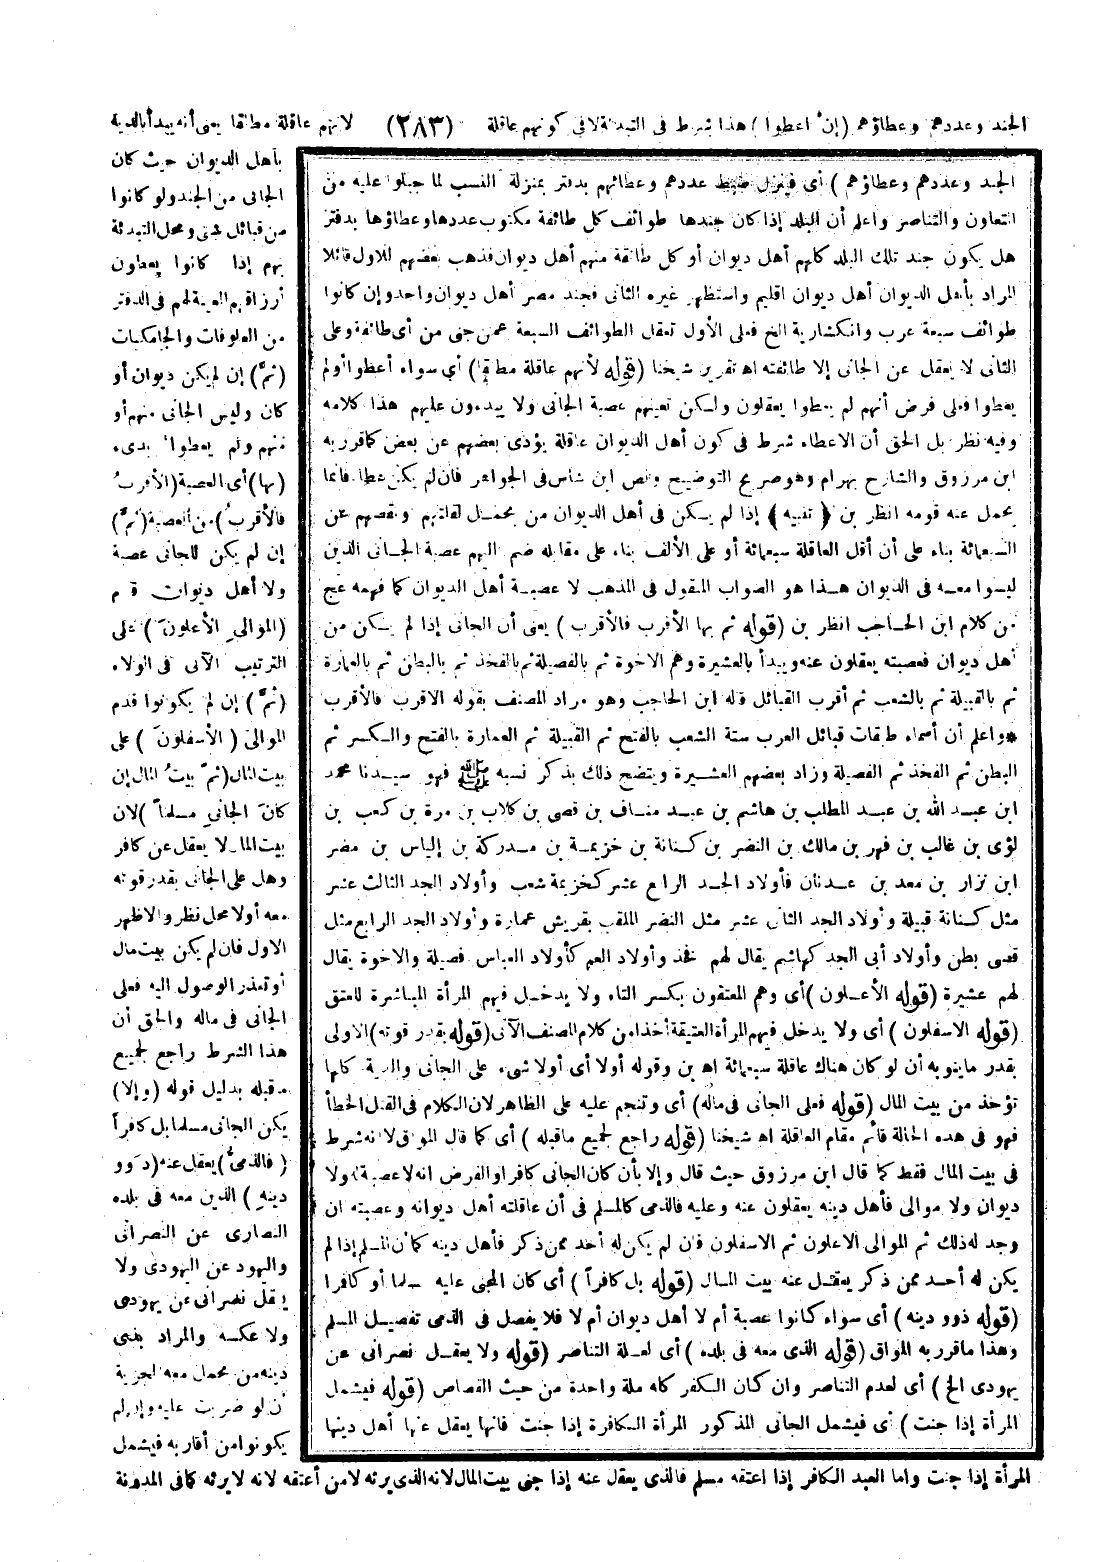 الجند وعددهم وعطاؤهم (إن اعطوا) هذا شرط فى التبدئة لا فى كونهم عاقلة (٢٨٣) لانهم عاقلة مطلقا يعنى أنه يبدأ بالدية
بأهل الديوان حيث كان
الجانى من الجند ولو كانوا
من قبائل شتى ومحل التبدئة
بهم إذا كانوا يعطون
أرزاقهم المعينة لهم فى الدفتر
من العلوفات والجامكيات
(ثم) إن لم يكن ديوان أو
كان وليس الجانى منهم أو
منهم ولم يعطوا بدىء
(بها) أى العصبة (الأقرب
فالأقرب) من العصبة (ثم)
إن لم يكن للجانى عصبة
ولا أهل ديوان قدم
(الموالى الأعلون) على
الترتيب الآتى فى الولاء
(ثم) إن لم يكونوا قدم
الموالى (الأسفلون) على
بيت المال (ثم بيت المال إن
كان الجانى مسلما) لان
بيت المال لا يعقل عن كافر
وهل على الجانى بقدر قوته
معه أولا محل نظر والاظهر
الاول فان لم يكن بيت مال
أو تعذر الوصول اليه فعلى
الجانى فى ماله والحق أن
هذا الشرط راجع لجميع
ما قبله بدليل قوله (وإلا)
يكن الجانى مسلما بل كافراً
(فالذمى) يعقل عنه (ذوو
دينه) الذين معه فى بلده
النصارى عن النصرانى
واليهود عن اليهودى ولا
يعقل نصرانى عن يهودى
ولا عكسه والمراد بذى
دينه من يحمل معه الجزية
أن لو ضربت عليه وإن لم
يكونوا من أقاربه فيشمل
المرأة إذا جنت واما العبد الكافر إذا اعتقه مسلم فالذى يعقل عنه إذا جنى بيت المال لانه الذى يرثه لا من أعتقه لانه لا يرثه كما فى المدونة
الجند وعددهم وعطاؤهم) أى فينزل ضبط عددهم وعطائهم بدفتر بمنزلة النسب لما جبلوا عليه من
التعاون والتناصر واعلم أن البلد إذا كان جندها طوائف كل طائفة مكتوب عددها وعطاؤها بدفتر
هل يكون جند تلك البلد كلهم أهل ديوان أو كل طائفة منهم أهل ديوان فذهب بعضهم للاول قائلا
المراد بأهل الديوان أهل ديوان اقليم واستظهر غيره الثانى فجند مصر أهل ديوان واحد وإن كانوا
طوائف سبعة عرب وانكشارية الخ فعلى الأول تعقل الطوائف السبعة عمن جنى من أى طائفة وعلى
الثانى لا يعقل عن الجانى إلا طائفته اه تقرير شيخنا (قوله لأنهم عاقلة مطلقا) أي سواء أعطوا أولم
يعطوا فعلى فرض أنهم لم يعطوا يعقلون ولكن تعينهم عصبة الجانى ولا يبدءون عليهم هذا كلامه
وفيه نظر بل الحق أن الاعطاء شرط فى كون أهل الديوان عاقلة يؤدى بعضهم عن بعض كما قرر به
ابن مرزوق والشارح بهرام وهو صريح التوضيح ونص ابن شاس فى الجواهر فان لم يكن عطا فانما
يحمل عنه قومه انظر بن ﴿ تنبيه ﴾ إذا لم يكن فى أهل الديوان من يحمل لقلتهم ونقصهم عن
السبعمائة بناء على أن أقل العاقلة سبعمائة أو على الألف بناء على مقابله ضم اليهم عصبة الجانى الذين
ليسوا معه فى الديوان هذا هو الصواب المنقول فى المذهب لا عصبة أهل الديوان كما فهمه عج
من كلام ابن الحاجب انظر بن (قوله ثم بها الأقرب فالأقرب) يعنى أن الجانى إذا لم يكن من
أهل ديوان فعصبته يعقلون عنه ويبدأ بالعشيرة وهم الاخوة ثم بالفصيلة ثم بالفخذ ثم بالبطن ثم بالعمارة
ثم بالقبيلة ثم بالشعب ثم أقرب القبائل قاله ابن الحاجب وهو مراد المصنف بقوله الاقرب فالأقرب
*واعلم أن أسماء طبقات قبائل العرب ستة الشعب بالفتح ثم القبيلة ثم العمارة بالفتح والكسر ثم
البطن ثم الفخذ ثم الفصيلة وزاد بعضهم العشيرة ويتضح ذلك بذكر نسبه ﷺ فهو سيدنا محمد
ابن عبد الله بن عبد المطلب بن هاشم بن عبد مناف بن قصى بن كلاب بن مرة بن كعب بن
لؤى بن غالب بن فهر بن مالك بن النضر بن كنانة بن خزيمة بن مدركة بن إلياس بن مضر
ابن نزار بن معد بن عدنان فأولاد الجد الرابع عشر كخزيمة شعب وأولاد الجد الثالث عشر
مثل كنانة قبيلة وأولاد الجد الثانى عشر مثل النضر الملقب بقريش عمارة وأولاد الجد الرابع مثل
قصى بطن وأولاد أبى الجد كهاشم يقال لهم فخذ وأولاد العم كأولاد العباس فصيلة والاخوة يقال
لهم عشيرة (قوله الأعلون) أى وهم المعتقون بكسر التاء ولا يدخل فيهم المرأة المباشرة للعتق
(قوله الاسفلون) أى ولا يدخل فيهم المرأة العتيقة أخذا من كلام الصنف الآتى (قوله بقدر قوته) الاولى
بقدر ما ينوبه أن لو كان هناك عاقلة سبعمائة اه بن وقوله أولا أى أولا شىء على الجانى والدية كلها
تؤخذ من بيت المال (قوله فعلى الجانى فى ماله) أى وتنجم عليه على الظاهر لان الكلام فى القتل الخطأ
فهو فى هذه الحالة قائم مقام العاقلة اه شيخنا (قوله راجع لجميع ما قبله) أى كما قال المواق لا انه شرط
فى بيت المال فقط كما قال ابن مرزوق حيث قال وإلا بأن كان الجانى كافرا والفرض انه لا عصبة له ولا
ديوان ولا موالى فأهل دينه يعقلون عنه وعليه فالذمى كالمسلم فى أن عاقلته أهل ديوانه وعصبته ان
وجد له ذلك ثم الموالى الاعلون ثم الاسفلون فان لم يكن له أحد ممن ذكر فأهل دينه كما أن المسلم إذا لم
يكن له أحد ممن ذكر يعقل عنه بيت المال (قوله بل كافراً) أى كان المجنى عليه مسلما أو كافرا
(قوله ذوو دينه) أى سواء كانوا عصبة أم لا أهل ديوان أم لا فلا يفصل فى الذمى تفصيل المسلم
وهذا ما قرر به المواق (قوله الذى معه فى بلده) أى لعلة التناصر (قوله ولا يعقل نصرانى عن
يهودى الخ) أى لعدم التناصر وان كان الكفر كله ملة واحدة من حيث القصاص (قوله فيشمل
المرأة إذا جنت) أى فيشمل الجانى المذكور المرأة الكافرة إذا جنت فانها يعقل عنها أهل دينها